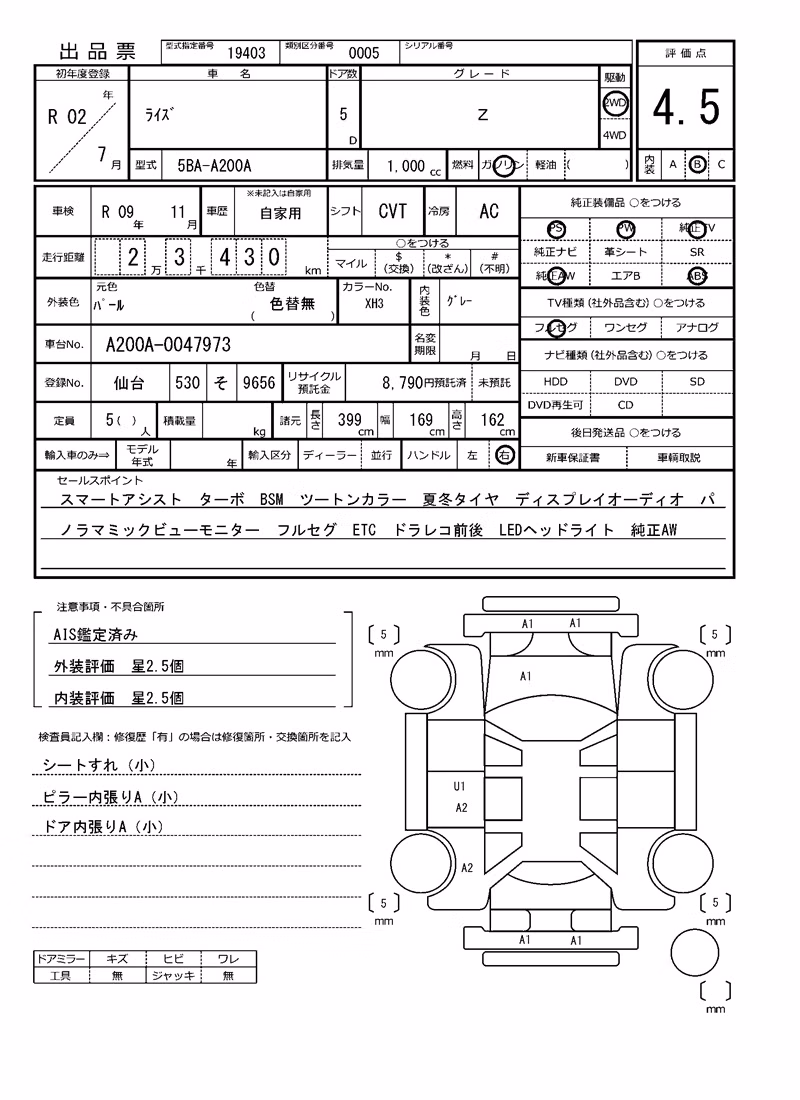 出品票 型式指定番号 19403 類別区分番号 0005 シリアル番号
評価点
4.5
内装 A B C
初年度登録 車名 ドア数 グレード 駆動
R 02 年 7 月
ライズ 5 D Z 2WD
4WD
型式 5BA-A200A 排気量 1,000 cc 燃料 ガソリン 軽油 ( )
車検 R 09 年 11 月 車歴 ※未記入は自家用 自家用 シフト CVT 冷房 AC
走行距離 2 万 3 千 4 3 0 km
○をつける
マイル $ (交換) * (改ざん) # (不明)
外装色 元色 パール 色替 色替無 ( ) カラーNo. XH3 内装色 グレー
車台No. A200A-0047973 名変期限 月 日
登録No. 仙台 530 そ 9656 リサイクル預託金 8,790円預託済 未預託
定員 5( ) 人 積載量 kg 諸元 長さ 399 cm 幅 169 cm 高さ 162 cm
輸入車のみ⇒ モデル年式 年 輸入区分 ディーラー 並行 ハンドル 左 右
純正装備品 ○をつける
PS PW 純正TV
純正ナビ 革シート SR
純正AW エアB ABS
TV種類(社外品含む) ○をつける
フルセグ ワンセグ アナログ
ナビ種類(社外品含む) ○をつける
HDD DVD SD
DVD再生可 CD
後日発送品 ○をつける
新車保証書 車輌取説
セールスポイント
スマートアシスト ターボ BSM ツートンカラー 夏冬タイヤ ディスプレイオーディオ パ
ノラマミックビューモニター フルセグ ETC ドラレコ前後 LEDヘッドライト 純正AW
注意事項・不具合箇所
AIS鑑定済み
外装評価 星2.5個
内装評価 星2.5個
検査員記入欄:修復歴「有」の場合は修復箇所・交換箇所を記入
シートすれ(小)
ピラー内張りA(小)
ドア内張りA(小)
ドアミラー キズ ヒビ ワレ
工具 無 ジャッキ 無
5 mm
A1 A1
5 mm
A1
U1
A2
A2
5 mm
A1 A1
5 mm
mm